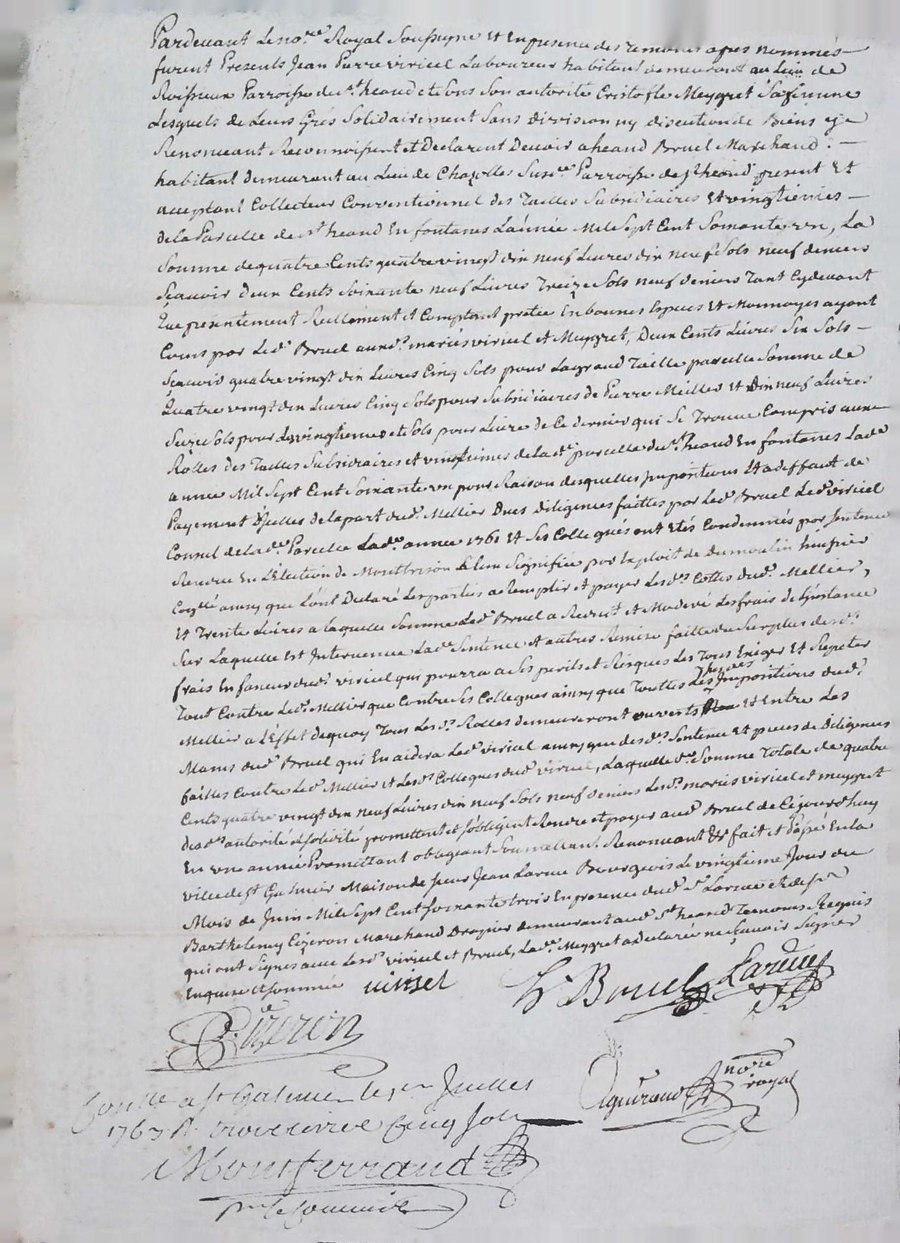 Pardevant Le no.re Royal Soussigné Et En presence des temoins apres nommés
furent Presents Jean Pierre viricel Laboureur habitant demeurant au Lieu de
Parroisse de St héand et sous Son autorité Cristofle Meygret Sa femme
Lesquels de Leurs Grés Solidairement Sans division ny discution de Biens y
Renonceant Reconnoissent et Declarent Devoir a heand Bruel Marchand
habitant demeurant au Lieu de Chazolles Susd.e Parroisse de St heand present Et
acceptant Collecteur Conventionnel des Tailles Subsidiaires Et vingtiemes
de la Parcelle de St heand En fontanes L'année Mil Sept Cent Soixante un, La
Somme de quatre Cents quatre vingt dix neuf Livres dix neuf Sols neuf deniers
Sçavoir deux Cents Soixante neuf Livres Treize Sols neuf deniers Tant Cydevant
Que presentement Reellement et Comptant pretée En bonnes Especes Et Monnoyes ayant
Cours par Led.t Bruel auxd.s mariés viricel et Meygret, Deux Cents Livres Six Sols
Sçavoir quatre vingt dix Livres Cinq Sols pour La grand Taille parcelle Somme de
Quatre vingt dix Livres Cinq Sols pour Subsidiaires de Pierre Meilles Et Dix neuf Livres
Seize Sols pour Le vingtieme et Sols pour Livre de Ce dernier qui Se Trouve Compris aux
Rolles des Tailles Subsidiaires et vingtiemes de La d.e parcelle de St heand En fontanes Lad.e
année Mil Sept Cent Soixante un pour Raison desquelles Impositions Et a deffaut de
Payement D'icelles de La part dud.t Mellier Dues diligences faittes par Led.t Bruel Led.t viricel
Consul de Lad.e Parcelle Lad.e année 1761 Et Ses Collegués ont Etés Condemnés par Sentence
Rendue En L'Election de Montbrison a Eux Signifiée par Exploit de Dumoulin huissier
ainsy que L'ont Declaré Les parties a Remplir et payer Lesd.s Cottes dud.t Mellier,
Et Trente Livres a laquelle Somme Led.t Bruel a Reduit et Moderé Les frais de L'instance
Sur Laquelle Est Intervenue Lad.e Sentence Et autres Remise faitte du Surplus desd.s
frais En faveur dud.t viricel qui pourra a Ses perils et Risques Les Tous Exiger Et Repeter
Tant Contre Led.t Mellier que Contre Ses Collegues ainsy que Touttes Les Impositions dud.t
Mellier a L'Effet dequoy Tous Lesd.s Rolles demeureront ouverts Et Entre Les
Mains dud.t Bruel qui En aidera Led.t viricel ainsy que desd.s Sentence Et pieces de Diligences
faittes Contre Led.t Mellier et Lesd.s Collegues dud.t viricel, Laquelle d.e Somme Totale de quatre
Cents quatre vingt dix neuf Livres dix neuf Sols neuf deniers Lesd.s mariés viricel et meygret
de lad.e autorité et Solidité promettent et S'obligent Rendre et payer aud.t Bruel de Cejourd'huy
En une année Promettant obligeant Soumettant Renonceant &c fait et passé En la
ville de St Galmier Maison de sieur Jean Larcue Bourgeois Le vingtieme Jour du
Mois de Juin Mil Sept Cent Soixante trois En presence dud.t Sr Larcue et de Sr
Barthelemy Cizeron Marchand Drapier demeurant aud.t St heand Temoins Requis
qui ont Signés avec Lesd.s viricel et Bruel, Lad.e Meygret a declarée ne Sçavoir Signer
Enquise et Sommée viricel
hd Bruel Larcue
Cizeron
no.re royal
a St Galmier le Juillet
1763 R. cinq sols
Montferrand